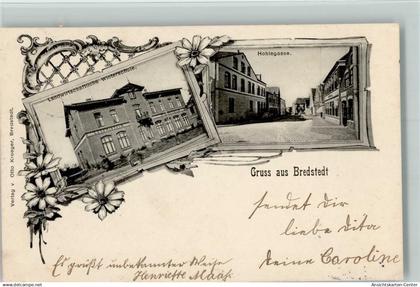 Landwirtschaftliche Winterschule.
Hohlegasse.
Verlag v. Otto Kroeger, Bredstedt.
Gruss aus Bredstedt
sendet Dir
liebe Dita
deine Caroline
Es grüßt unbekannter Weise
Henriette Maaß
Ansichtskarten-Center